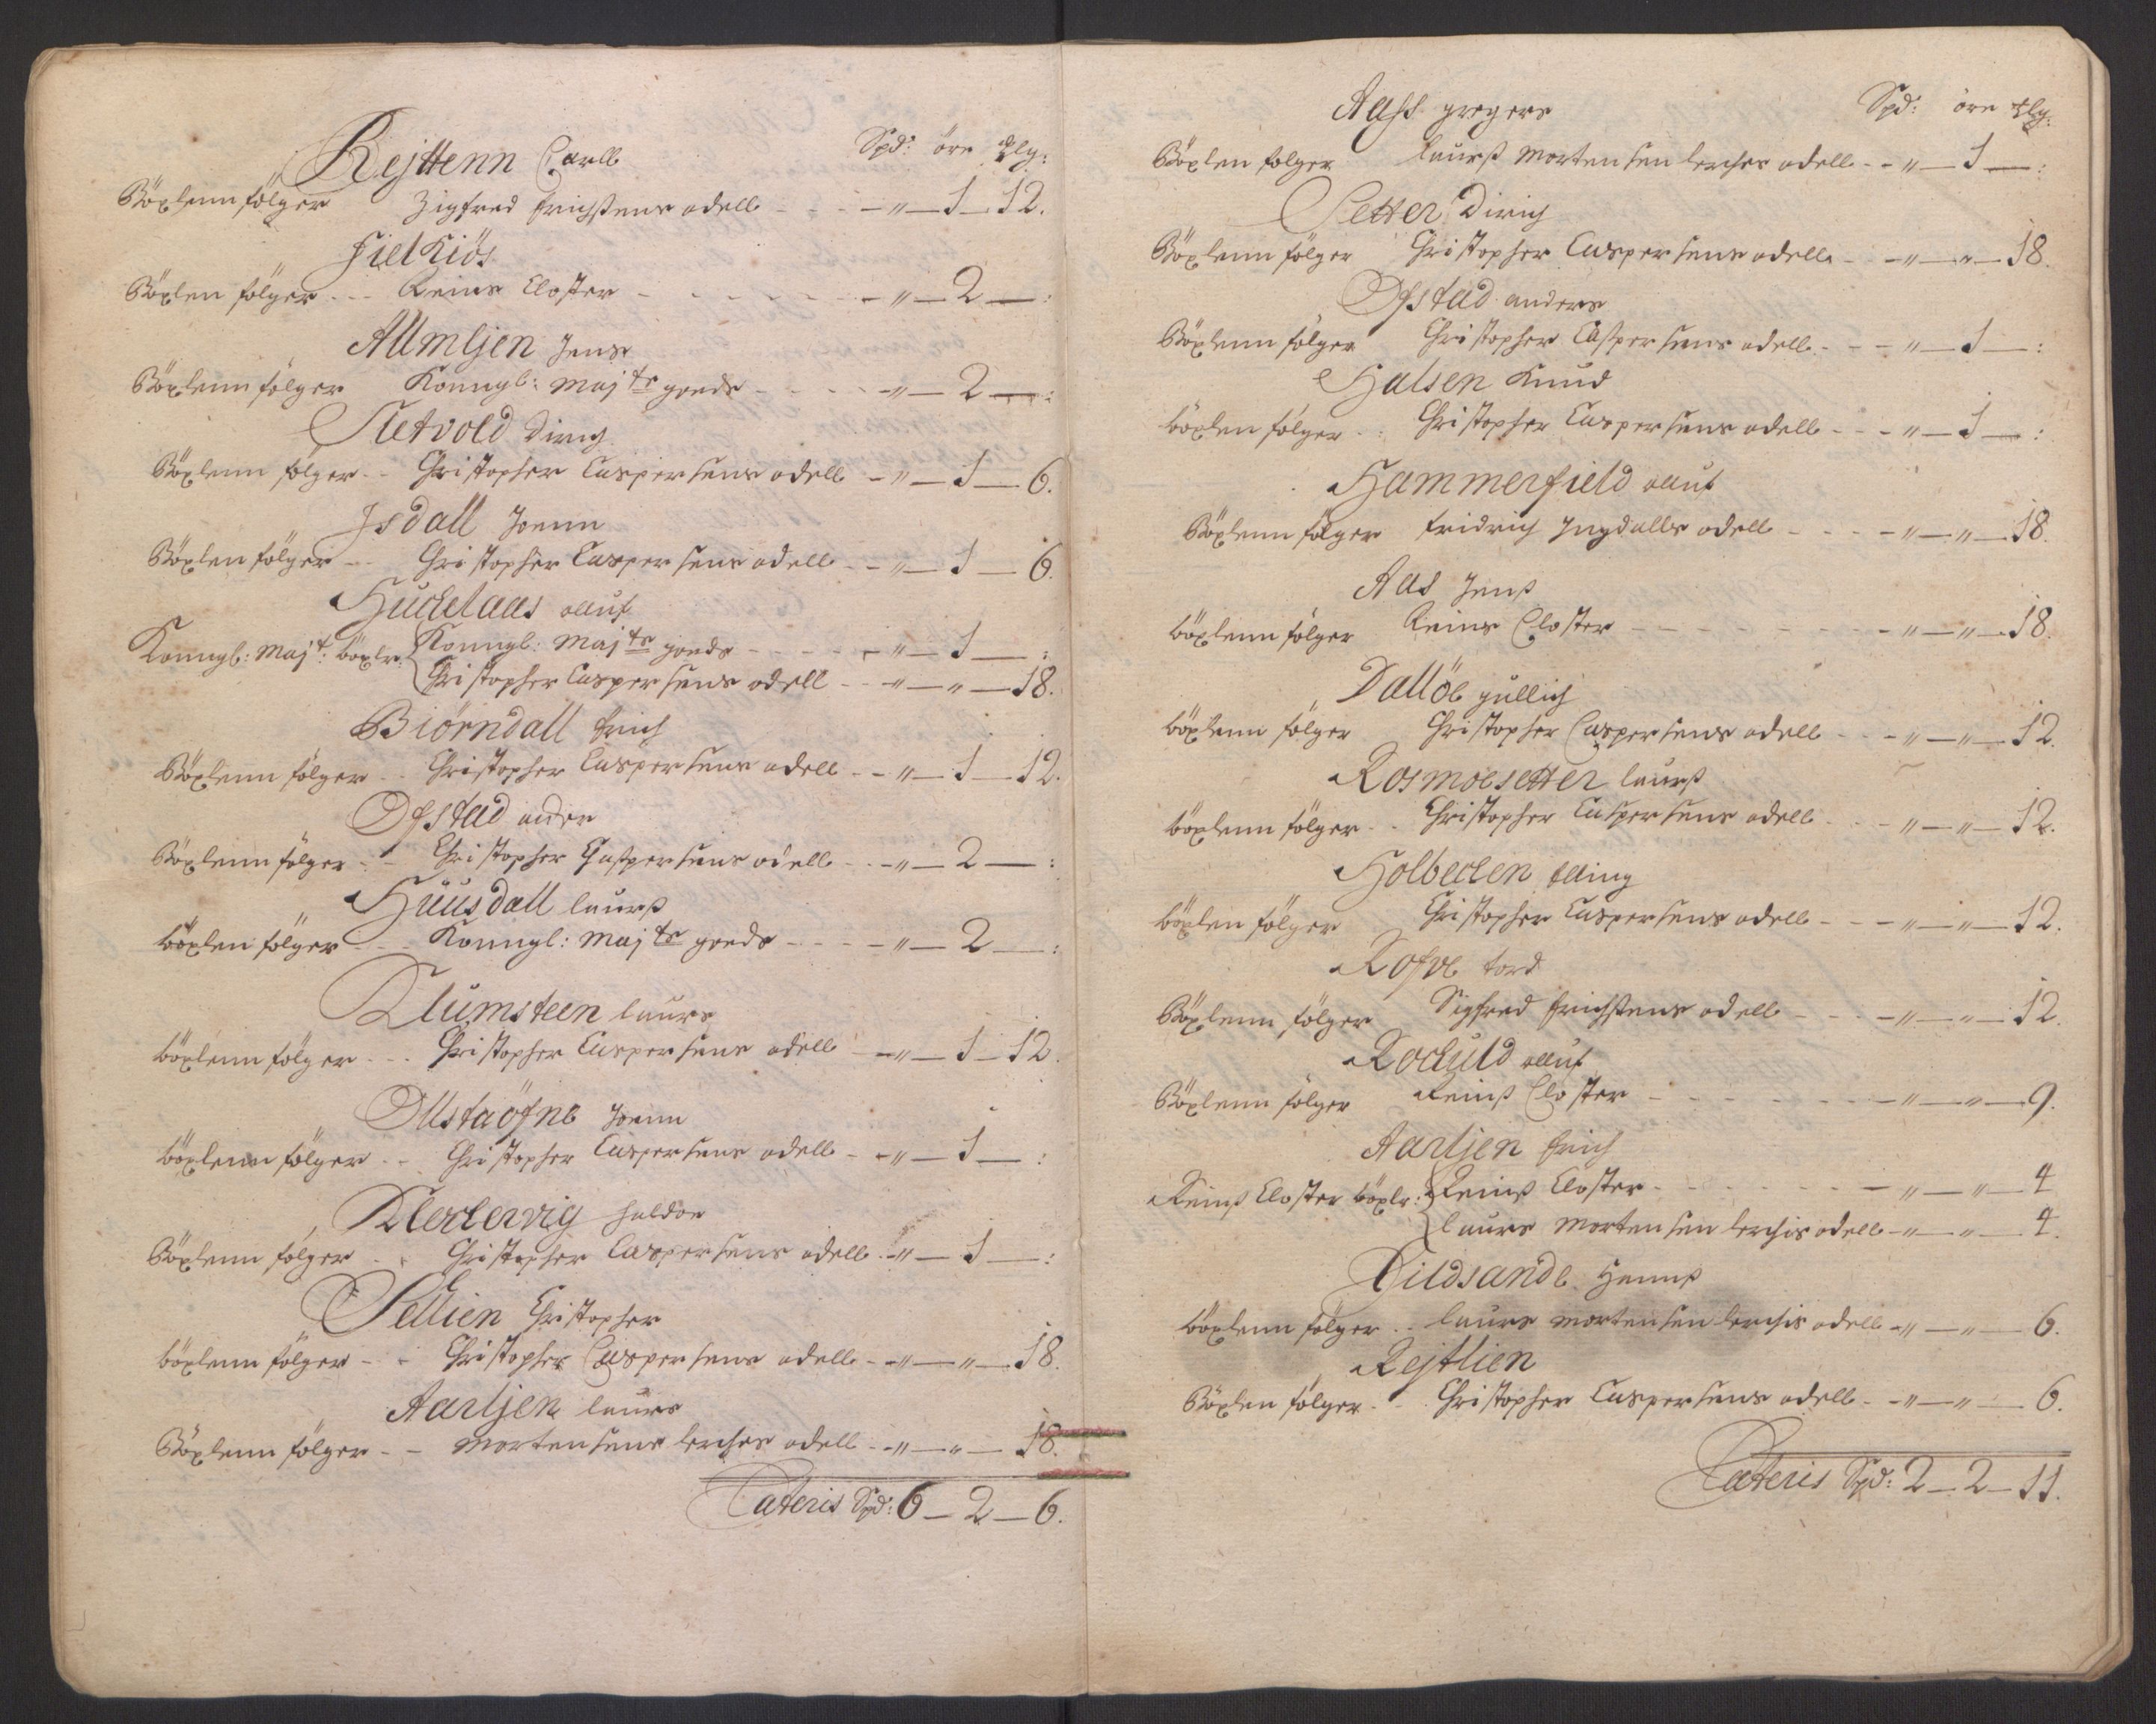 Spd: öre Mlg:
Rejttenn Carll
Böxlenn fölger Zigfred Erichsens odell - - - " - 1 - 12.
Fiel Kiös
Böxlen fölger - - Reins Closter - - - - - " - 2 - :
Allmljen Jens
Böxlenn fölger Konngl: Maj ts goeds - - - - " - 2 - :
Sletvold Dirich
Böxlenn fölger - - Christopher Caspersens odell - " - 1 - 6.
Isdall Joenn
Böxlen fölger - - Christopher Caspersens odell - - " - 1 - 6.
Huckelaas olluf
Konngl: Maj t: böxler: Konngl: Maj ts goeds - - - - " - 1 - :
Christopher Caspersens odell - - " - " - 18.
Biörndall Erich
Böxlenn fölger - - Christopher Caspersens odell - - " - 1 - 12.
Ofstad
Böxlenn fölger - - Christopher Caspersens odell - - " - 2 - :
Huusdall laurß
böxlen fölger - - Konngl: Maj ts goeds - - - - " - 2 - :
Klumsteen laurs
böxlenn fölger - - - Christopher Caspersens odell - " - 1 - 12.
Ollstaöfne Joenn
böxlenn fölger - - Christopher Caspersens odell - - " - 1 - :
Kleckervig haldor
Böxlenn fölger - - Christopher Caspersens odell - " - 1 - :
Sellien Christopher
böxlenn fölger - - Christopher Caspersens odell - - " - " - 18.
Aarljen laurs
Böxlenn fölger - - Mortensens lerches odell - - " - " - 18.
Lateris Spd: 6 - 2 - 6.
Spd: öre Mlg:
Aass gregers
Böxlen fölger laurß Mortensen lerches odell - - " - 1 - :
Setter Dirich
Böxlenn fölger Christopher Caspersens odell - - " - " - 18.
Ofstad anders
Böxlenn fölger Christopher Caspersens odell - - - " - 1 - :
Halsen Knud
böxlen fölger - - Christopher Caspersens odell - - - " - 1 - :
Hammerfield olluf
Böxlenn fölger Fridrich Jugdalls odell - - - - " - " - 18.
Aas Jenß
böxlenn fölger Reins Closter - - - - - - - " - " - 18.
Dallöe gullich
böxlenn fölger Christopher Caspersens odell - - - " - " - 12.
Rosmoesetter laurß
böxlenn fölger - - Christopher Caspersens odell - - - " - " - 12.
Holbecken Elling
böxlen fölger Christopher Caspersens odell - - - " - " - 12.
Rofve tord
Böxlenn fölger Sigfred Erichsens odell - - - - " - " - 12.
Rockuld olluf
Böxlenn fölger Reinß Closter - - - - - - - " - " - 9.
Aarljen Erich
Reinß Closter böxler: Reinß Closter - - - - - - " - " - 4
laurs Mortensen lerchis odell - " - " - 4.
Kildsande Hennß
böxlenn fölger - - laurs Mortensen lerchis odell - " - " - 6.
Rejtlien
Böxlen fölger - - Christopher Caspersens odell - - " - " - 6.
Lateris Spd: 2 - 2 - 11.